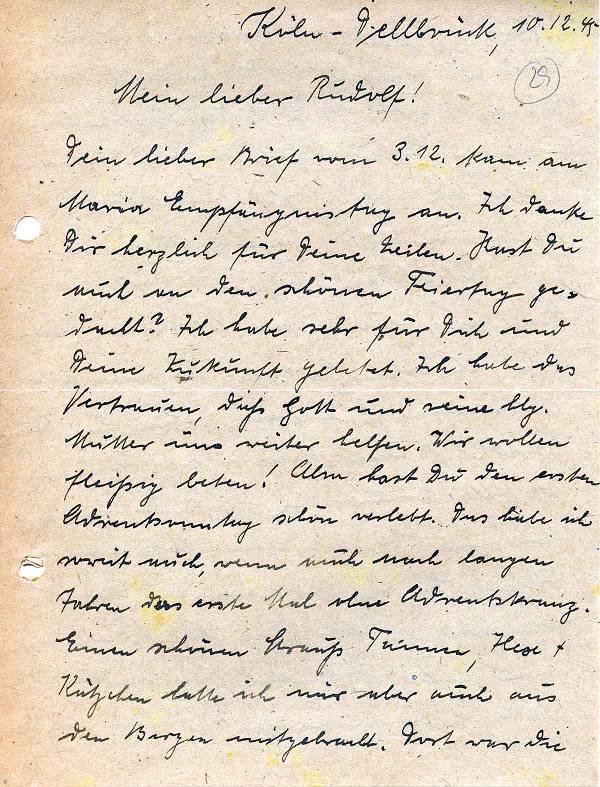 Köln-Dellbrück, 10.12.45
29
Mein lieber Rudolf!
Dein lieber Brief vom 3.12. kam am
Maria Empfängnistag an. Ich danke
Dir herzlich für Deine Zeilen. Hast Du
auch an den schönen Feiertag ge-
dacht? Ich habe sehr für Dich und
Deine Zukunft gebetet. Ich habe das
Vertrauen, daß Gott und seine hlg.
Mutter uns weiter helfen. Wir wollen
fleißig beten! Also hast Du den ersten
Adventsonntag schön verlebt. Das habe ich
soweit auch, wenn auch nach langen
Jahren das erste Mal ohne Adventskranz.
Einen schönen Strauß Tannen, +
Kätzchen hatte ich mir aber auch aus
den Bergen mitgebracht. Dort war die